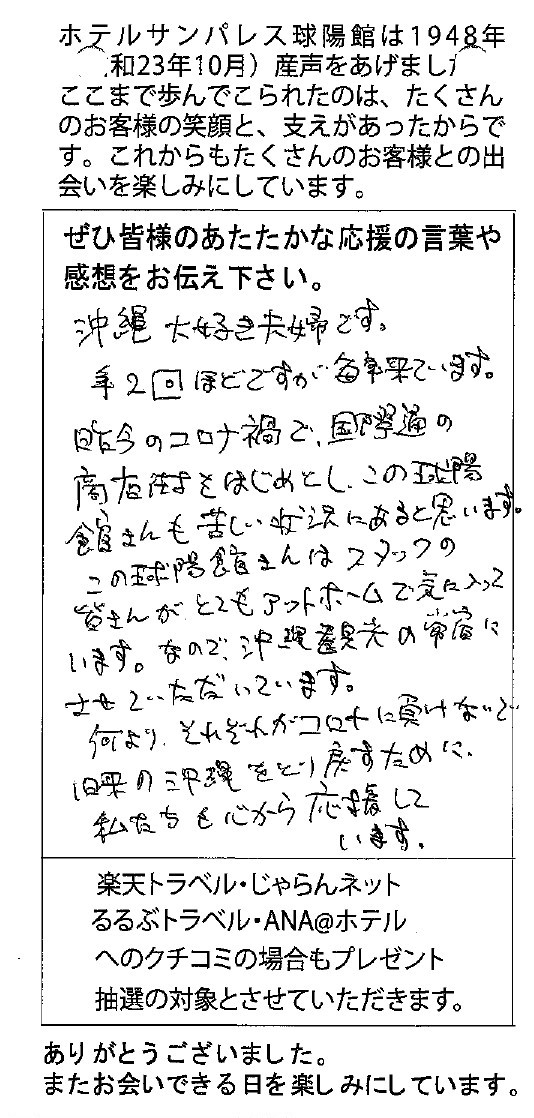 ホテルサンパレス球陽館は1948年
和23年10月）産声をあげまし
ここまで歩んでこられたのは、たくさん
のお客様の笑顔と、支えがあったからで
す。これからもたくさんのお客様との出
会いを楽しみにしています。
ぜひ皆様のあたたかな応援の言葉や
感想をお伝え下さい。
沖縄大好き夫婦です。
年2回ほどですが毎年来ています。
昨今のコロナ禍で、国際通の
商店街をはじめとし、この球陽
館さんも苦しい状況にあると思います。
この球陽館さんはスタッフの
皆さんがとてもアットホームで気に入って
います。なので、沖縄観光の常宿に
させていただいています。
何より、それぞれがコロナに負けないで
旧来の沖縄をとり戻すために、
私たちも心から応援して
います。
楽天トラベル・じゃらんネット
るるぶトラベル・ANA@ホテル
へのクチコミの場合もプレゼント
抽選の対象とさせていただきます。
ありがとうございました。
またお会いできる日を楽しみにしています。